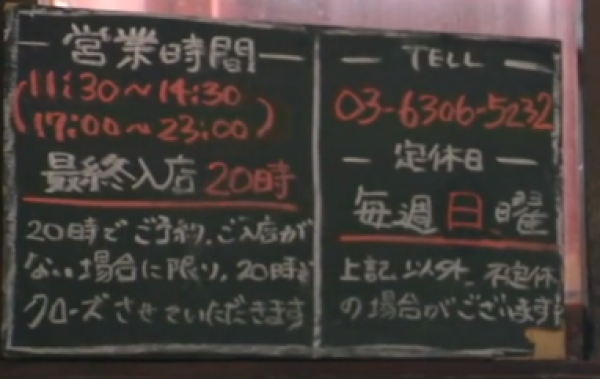 営業時間
11:30～14:30
17:00～23:00
最終入店 20時
20時でご予約、ご入店が
ない場合に限り、20時で
クローズさせていただきます
TELL
03-6306-5232
定休日
毎週日曜
上記以外、不定休
の場合がございます